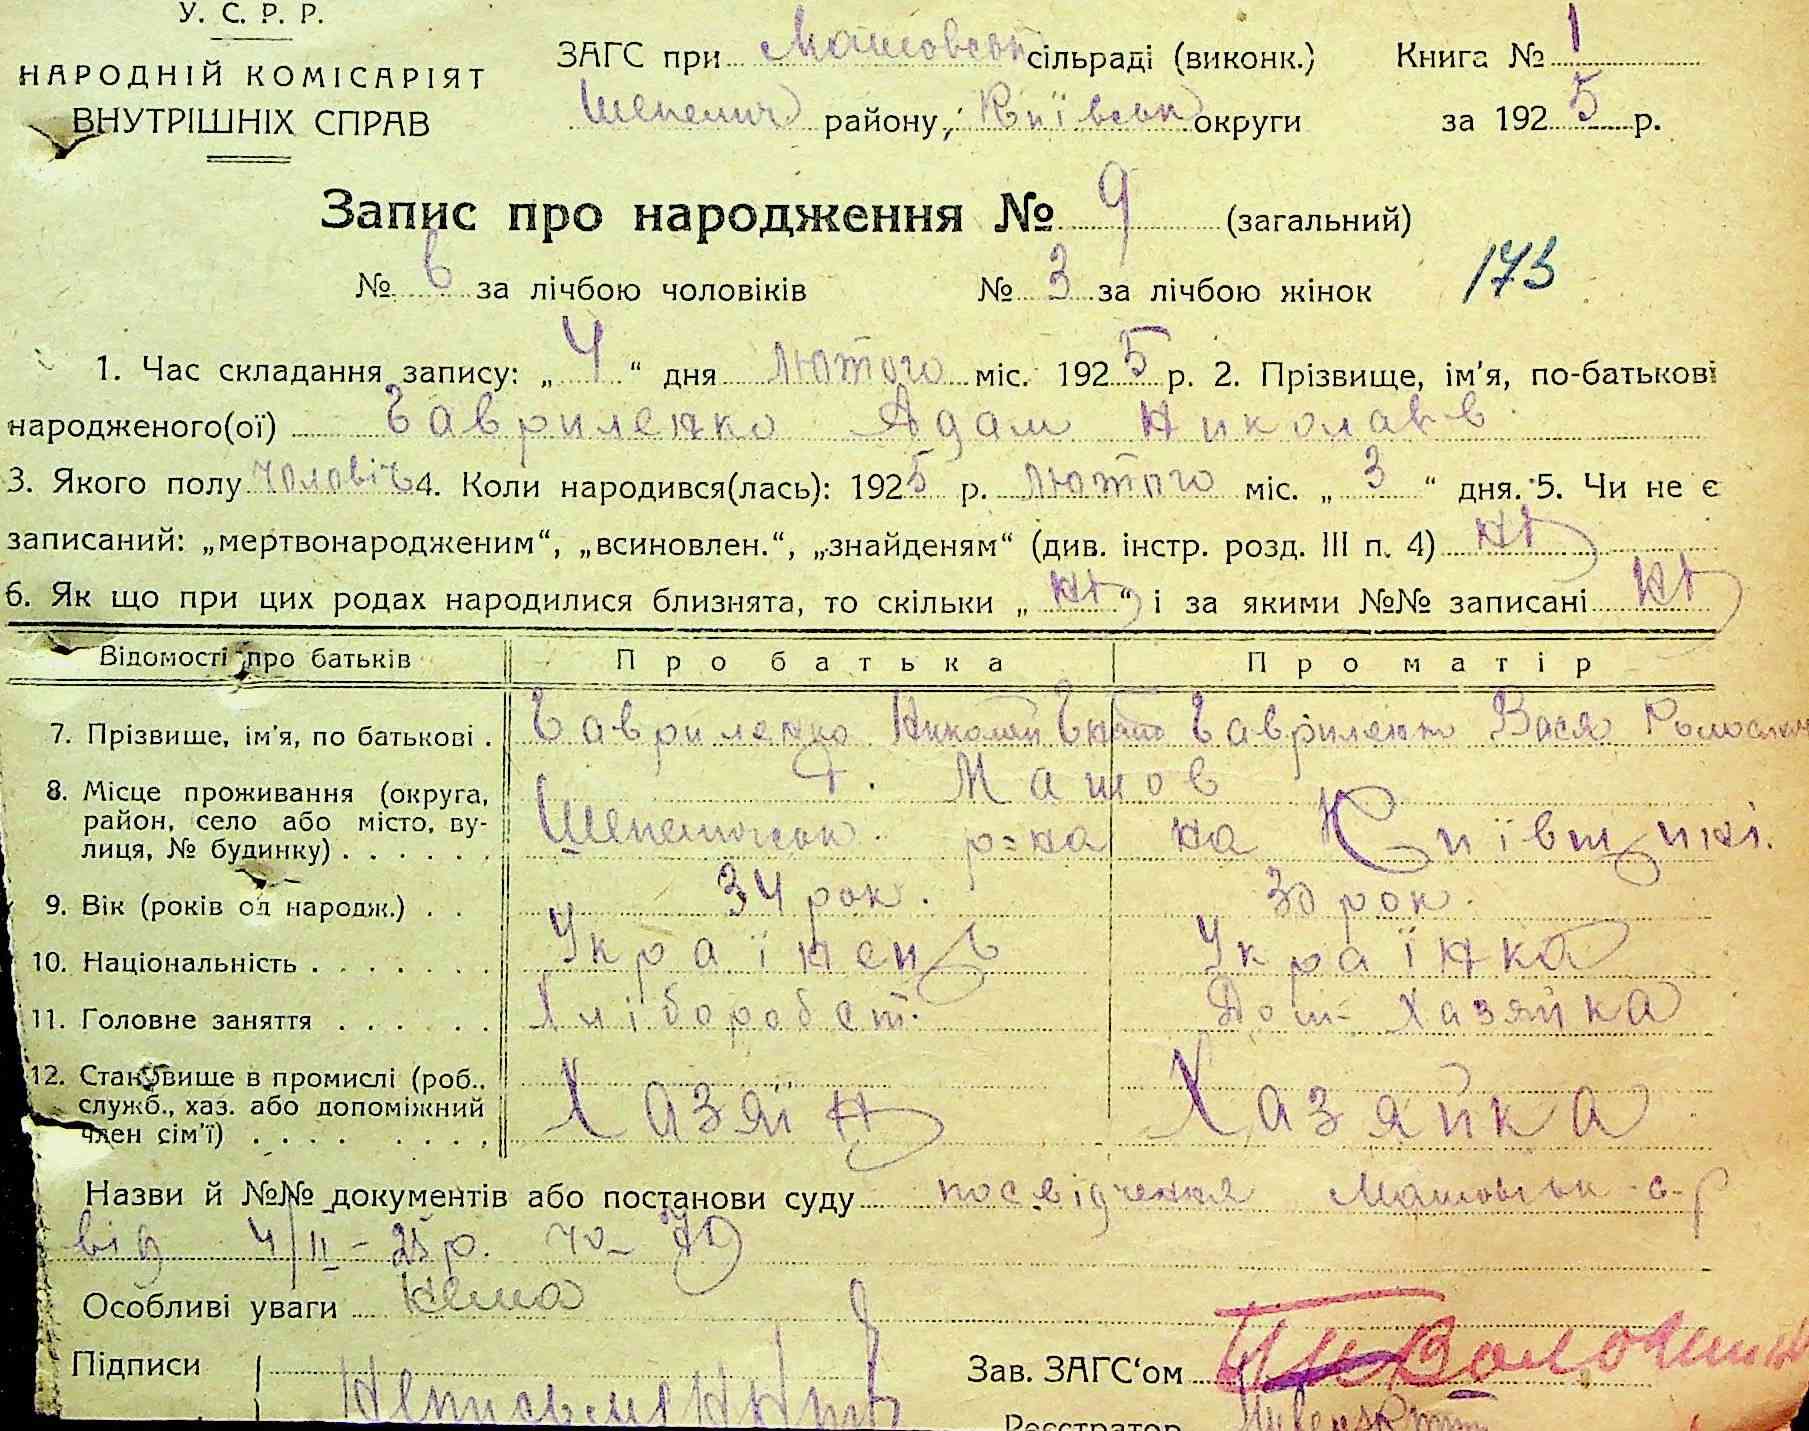 У. С. Р. Р.
НАРОДНІЙ КОМІСАРІЯТ
ВНУТРІШНІХ СПРАВ
ЗАГС при Машовськ сільраді (виконк.) Книга № 1
Шепелич району, Київськ округи за 1925 р.
Запис про народження № 9 (загальний)
№ 6 за лічбою чоловіків № 3 за лічбою жінок 173
1. Час складання запису: „4“ дня лютого міс. 1925 р. 2. Прізвище, ім'я, по-батькові
народженого(ої) Гавриленко Адам Николаєв
3. Якого полу чоловіч 4. Коли народився(лась): 1925 р. лютого міс. „3“ дня. 5. Чи не є
записаний: „мертвонародженим“, „всиновлен.“, „знайденям“ (див. інстр. розд. III п. 4) ні
6. Як що при цих родах народилися близнята, то скільки „ні“ і за якими №№ записані ні
Відомості про батьків Про батька Про матір
7. Прізвище, ім'я, по батькові . Гавриленко Николай Гавриленко Вася
8. Місце проживання (округа, район, село або місто, вулиця, № будинку) . . . . . . Машов
р-на на Київщині.
9. Вік (років од народж.) . . 34 рок. 30 рок.
10. Національність . . . . . . . Українець Українка
11. Головне заняття . . . . . . Хлібороб Дом- хазяйка
12. Становище в промислі (роб., служб., хаз. або допоміжний член сім'ї) . . . . . . . . Хазяїн Хазяйка
Назви й №№ документів або постанови суду посвідчення Машовськ с-р
від 4/II - 25 р.
Особливі уваги нема
Підписи Неписьменний Зав. ЗАГС'ом
Реєстратор